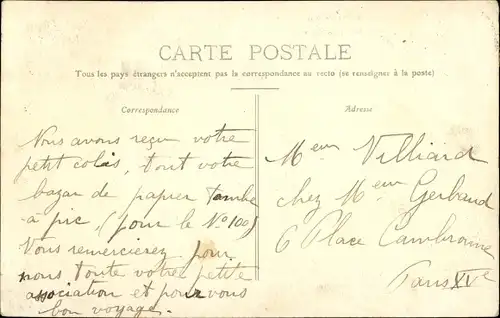 CARTE POSTALE
Tous les pays étrangers n'acceptent pas la correspondance au recto (se renseigner à la poste)
Correspondance
Nous avons reçu votre
petit colis, tout votre
bazar de papier tombe
à pic, (pour le No 100)
Vous remercierez pour
nous toute votre petite
association et pour vous
bon voyage.
Adresse
Meur Villiard
chez Meur Gerbaud
6 Place Cambronne
Paris XVe